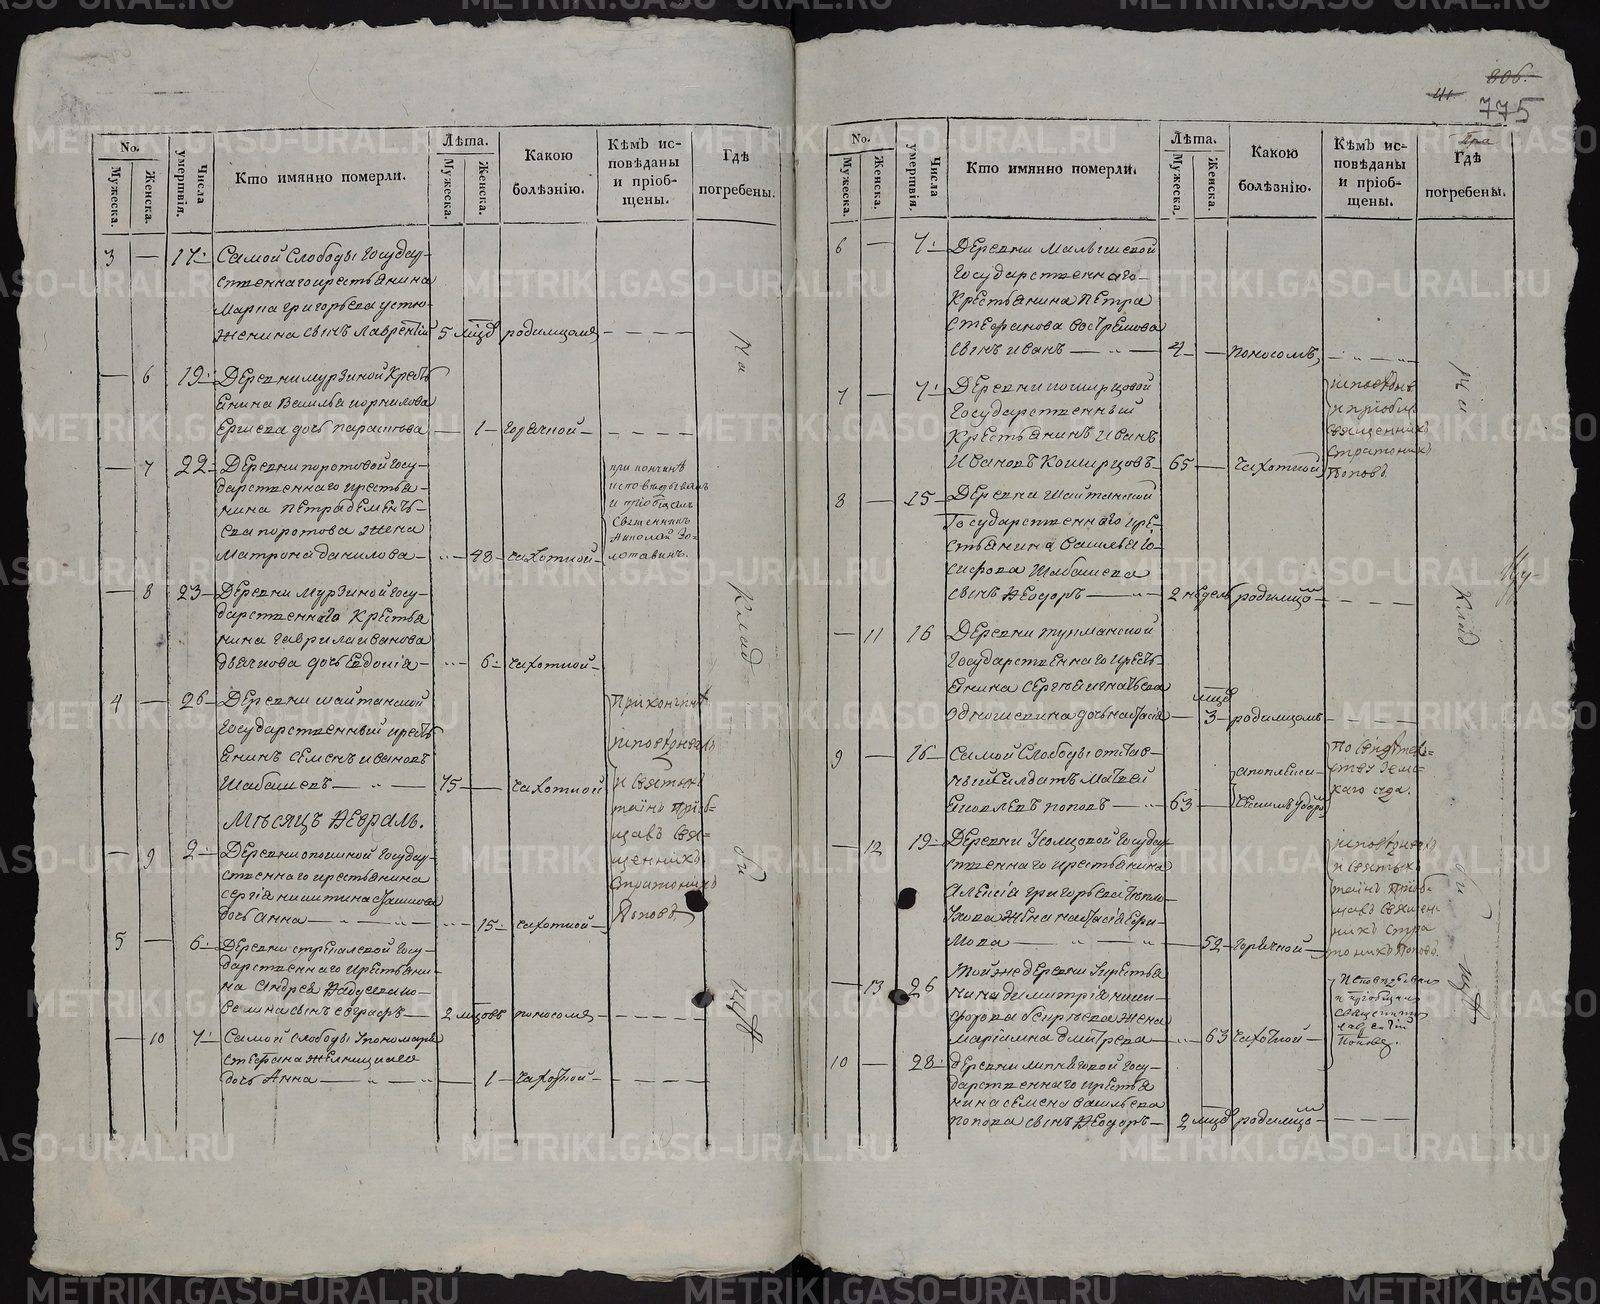 806.
41.
775
No.
Мужеска.
Женска.
Числа умертвія.
Кто имянно померли.
Лѣта.
Мужеска.
Женска.
Какою
болѣзнію.
Кѣмъ ис-
повѣданы
и пріоб-
щены.
Гдѣ
погребены.
3 — 17. Самой Слободы государ-
ственнаго крестьянина
Марка григорьева устю-
женина сынъ Лаврентій 5 мцъ родимцомъ — — — —
— 6 19. Деревни мурзиной Кресть
янина Василья корнилова
дочь параскева — 1 — горячкой — — — — —
— 7 22 — Деревни поротовой госу-
дарственнаго крестья-
нина Петра Дементь-
ева поротова жена
Матрона данилова — 48 — чахоткой —
при кончинѣ
исповѣдывалъ
и пріобщалъ
Священникъ
Николай Зо-
лотавинъ.
— 8 23 — Деревни Мурзиной госу-
дарственнаго Крестья
нина гаврила иванова
дьячкова дочь Евдокія — 6 — чахоткой —
4 — 26 — Деревни шайтанской
государственный кресть
янинъ Семенъ ивановъ
Шабашевъ — 75 — чахоткой
При кончинѣ
исповѣдывалъ
и святыхъ
таинъ пріоб-
щавъ свя-
щенникъ
Стратоникъ
Поповъ
Мѣсяцъ Февраль.
— 9 2. Деревни государ-
ственнаго крестьянина
сергія никитина
дочь Анна — 15 — чахоткой —
5 — 6. Деревни стрекаловой госу-
дарственнаго крестьяни-
на Андрея
сынъ евграфъ — 2 мцовъ поносомъ — — — — —
— 10 7 — Самой слободы пономаря
стефана
дочь Анна — 1 — чахоткой — — — — —
На
Клад
би
щѣ
No.
Мужеска.
Женска.
Числа умертвія.
Кто имянно померли.
Лѣта.
Мужеска.
Женска.
Какою
болѣзнію.
Кѣмъ ис-
повѣданы
и пріоб-
щены.
Гдѣ
погребены.
6 — 7. Деревни Малышевой
государственнаго
Крестьянина Петра
Стефанова вострецова
сынъ иванъ — 4 — поносомъ, — — — —
7 — 7 — Деревни коширцовой
государственный
Крестьянинъ иванъ
Ивановъ Коширцовъ — 65 — чахоткой
исповѣдывалъ
и пріобщ.
священникъ
Стратоникъ
Поповъ
8 — 15 — Деревни Шайтанской
Государственнаго кре-
стьянина василья іо-
сифова Шабашева
сынъ Феодоръ — 2 недель родимцо — — — —
— 11 16 Деревни
государственнаго кресть-
янина сергѣя игнатьева
дочь настасія — 3 мцъ — родимцомъ — — — —
9 — 16 — Самой Слободы отстав-
ный солдатъ Матвей
Яковлевъ поповъ — 63 — апоплекси-
ческимъ ударо
По свидетель-
ству зем-
скаго суда.
— 12 19 — Деревни Усолцовой государ
ственнаго крестьянина
Алексія григорьева
жена настасія Ефи-
мова — 52 — горячкой —
исповѣдывалъ
и святыхъ
таинъ пріоб-
щавъ священ-
никъ Стра
тоникъ Поповъ
— 13 26 Тойже деревни Крестья
нина димитрія ники-
форова жена
маріамна дмитрева — 63 чахоткой —
исповѣдывалъ
и пріобщалъ
священникъ
Поповъ.
10 — 28 — деревни госу-
дарственнаго крестья
нина семена васильева
попова сынъ Феодоръ — 2 мцъ родимцо — — — —
На
Клад
би
щѣ
METRIKI.GASO-URAL.RU